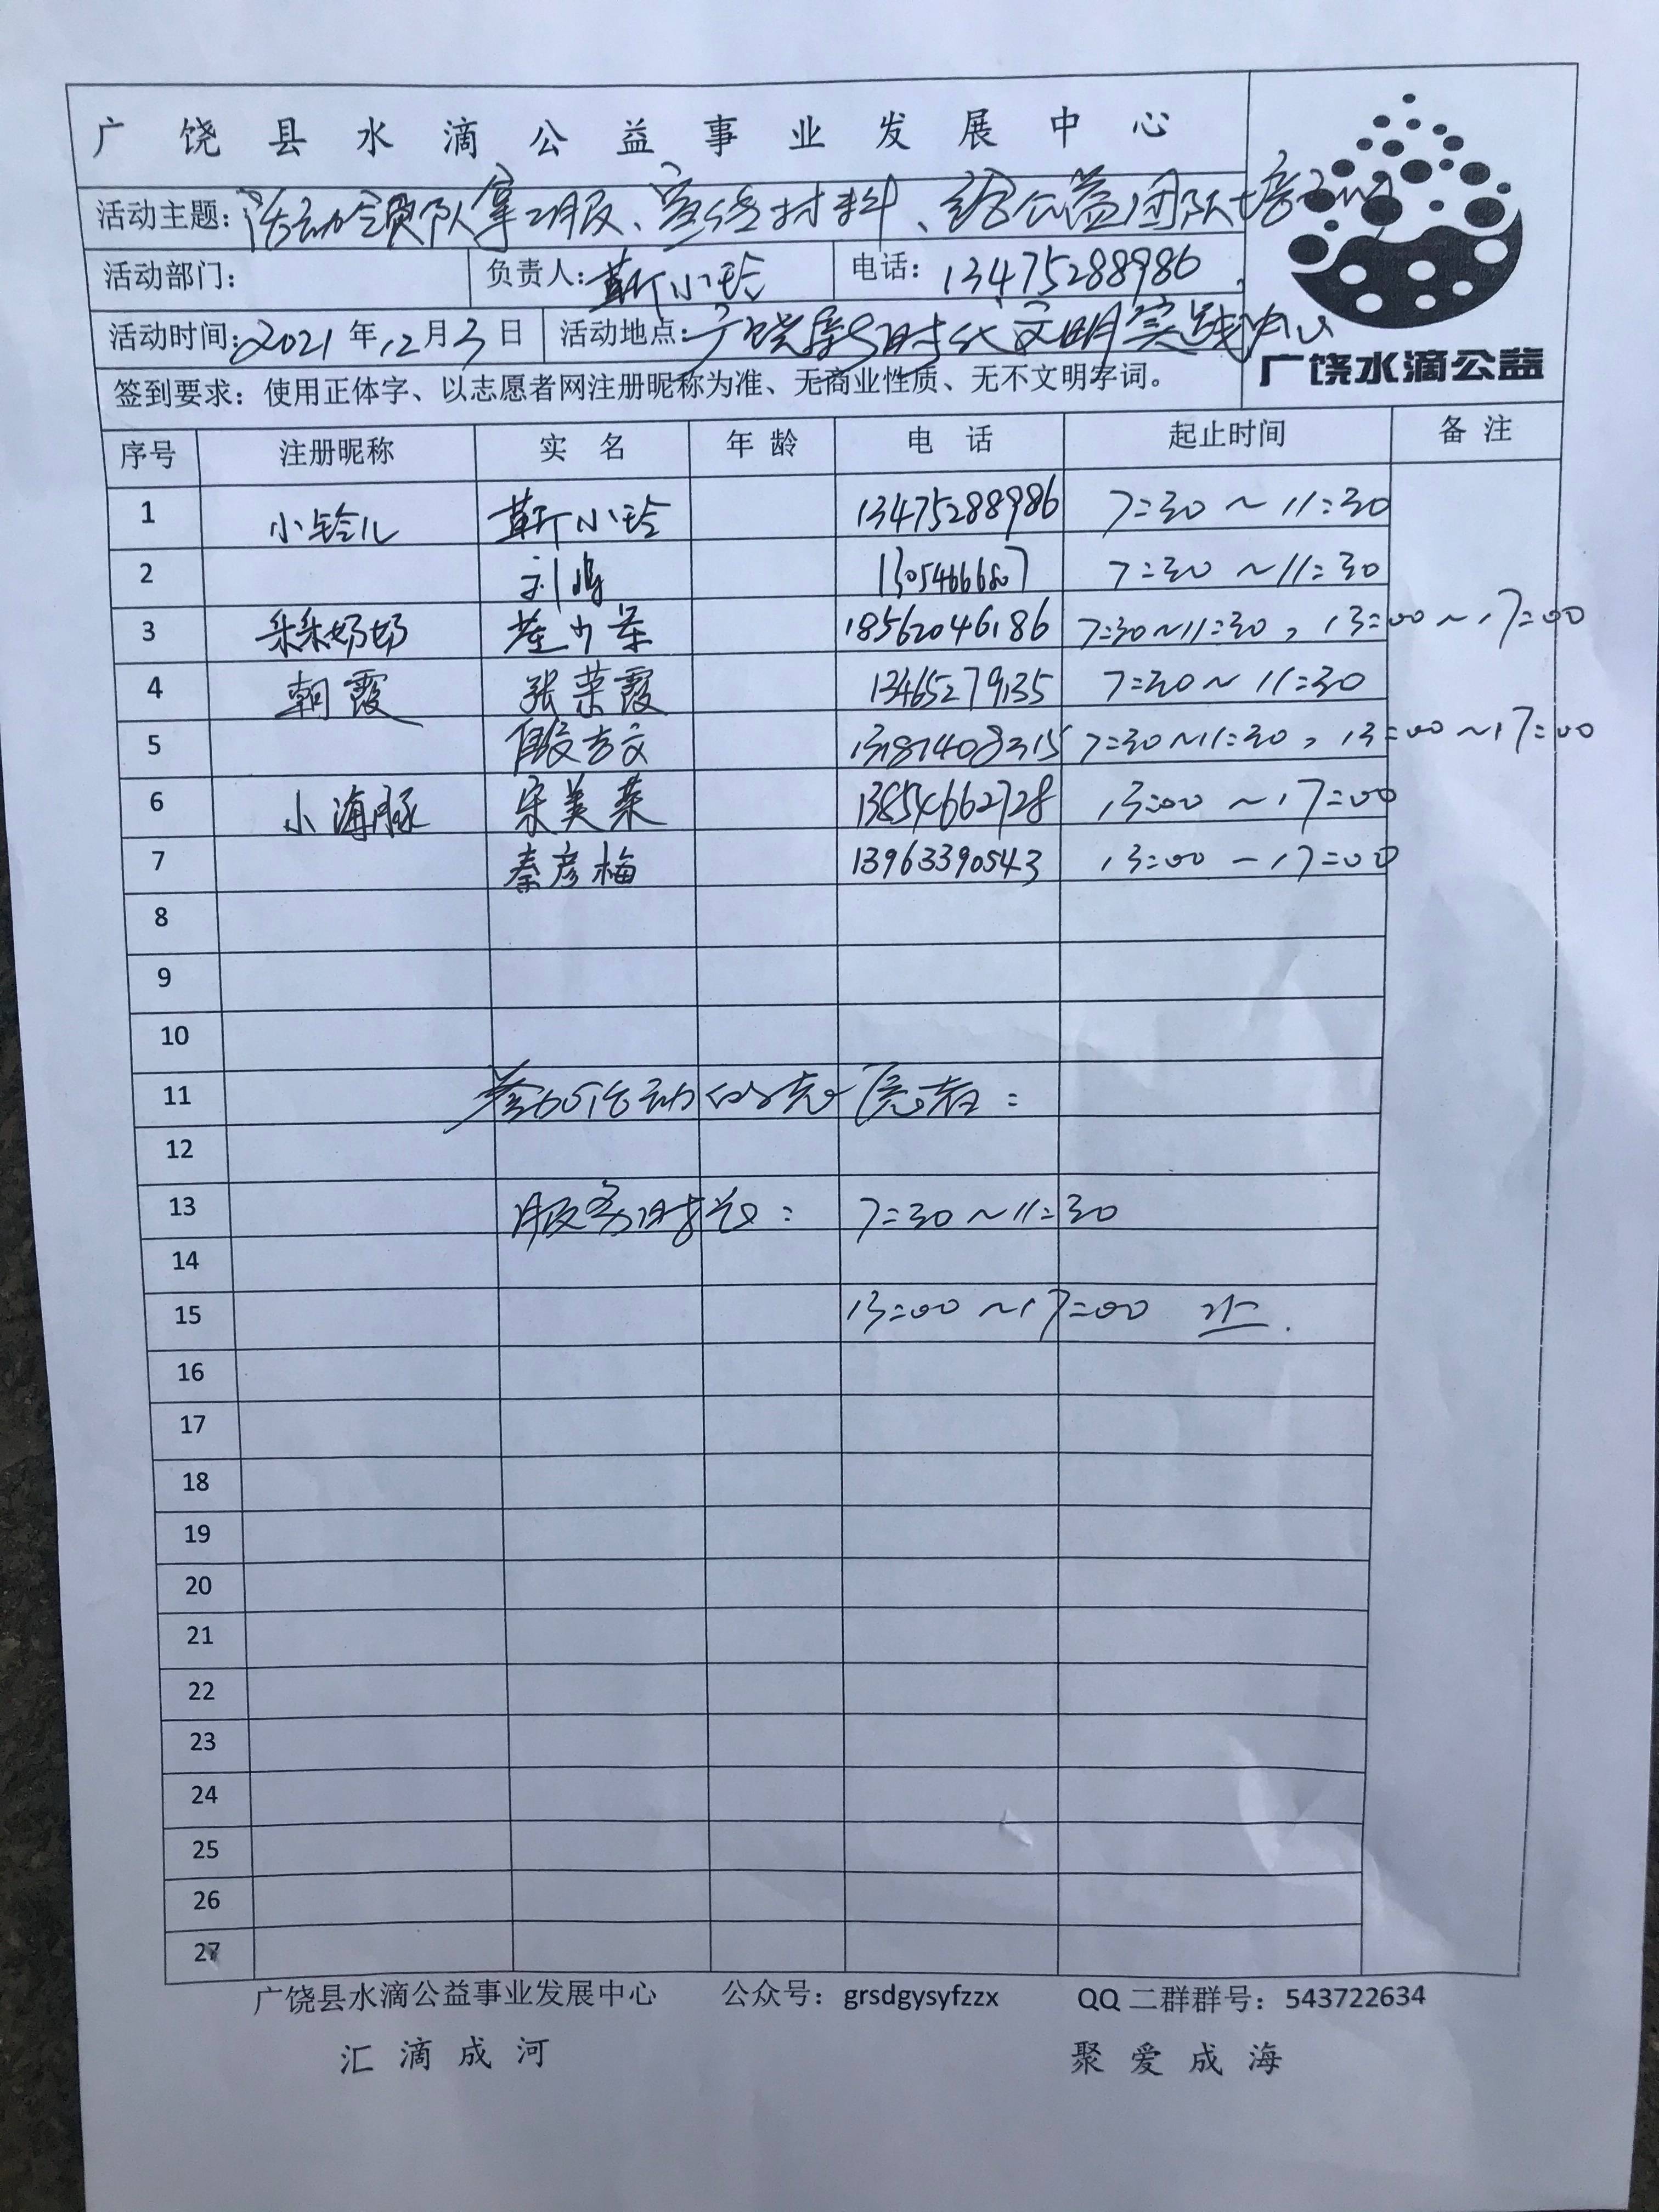 广饶县水滴公益事业发展中心
活动主题：活动领队拿服、宣传材料、给公益团队培训
活动部门： 负责人：靳小玲 电话：13475288986
活动时间：2021年12月3日 活动地点：广饶新时代文明实践中心
广饶水滴公益
签到要求：使用正体字、以志愿者网注册昵称为准、无商业性质、无不文明字词。
序号 注册昵称 实名 年龄 电话 起止时间 备注
1 小铃儿 靳小玲 13475288986 7:30～11:30
2 刘 7:30～11:30
3 采采奶奶 18562046186 7:30～11:30，13:00～17:00
4 朝霞 张荣霞 13465279135 7:30～11:30
5 殷方文 7:30～11:30，13:00～17:00
6 小海豚 宋美荣 13854662728 13:00～17:00
7 秦彦梅 13963390543 13:00－17:00
8
9
10
11 参加活动的志愿者：
12
13 服务时长：7:30～11:30
14
15 13:00～17:00
16
17
18
19
20
21
22
23
24
25
26
27
广饶县水滴公益事业发展中心 公众号：grsdgysyfzzx QQ二群群号：543722634
汇滴成河 聚爱成海